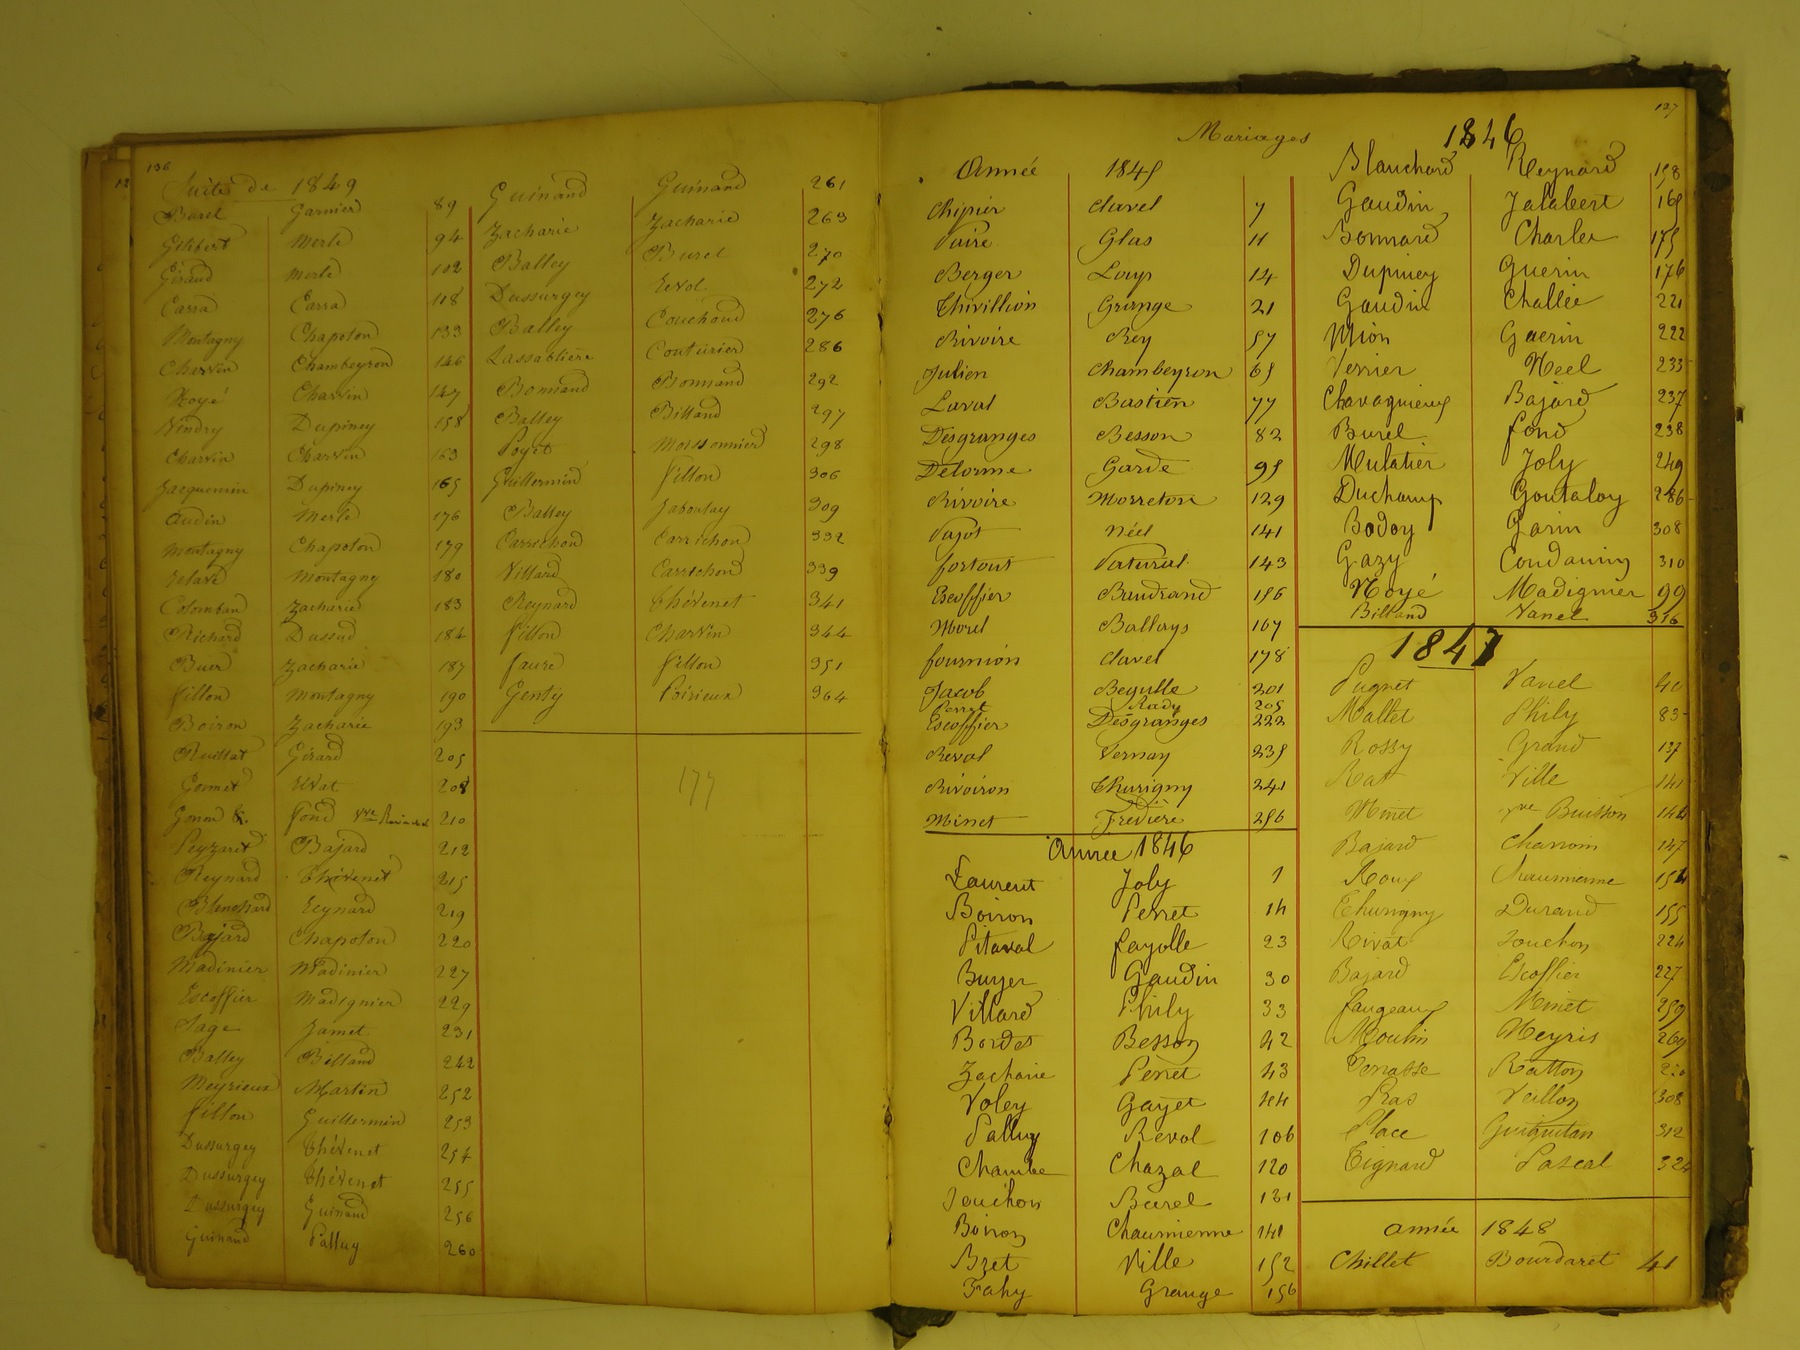 136
Suite de 1849
Burel Garnier 89
Gillibert Merle 94
Giraud Merle 102
Carra Carra 118
Montagny Chapoton 133
Charvin Chambeyron 146
Noyé Charvin 147
Vindry Dupiney 158
Charvin Charvin 163
Jacquemin Dupiney 165
Audin Merle 176
Montagny Chapoton 179
Montagny 180
Colomban Zacharie 183
Richard Dussud 184
Buer Zacharie 187
fillon Montagny 190
Boiron Zacharie 193
Ruillat Girard 205
Gonnet Rivat 208
Gonon fond vve 210
Peyzaret Bajard 212
Reynard Thévenet 215
Blanchard Reynard 219
Bajard Chapoton 220
Madinier Madinier 227
Escoffier Madignier 229
Sage Jamet 231
Balley Billand 242
Meyrieux Martin 252
fillon Guillermin 253
Dussurgey Thévenet 254
Dussurgey Thévenet 255
Dussurgey Guinand 256
Guinand Palluy 260
Guinand Guinand 261
Zacharie Zacharie 263
Balley Burel 270
Dussurgey Revol 272
Balley Couchoud 276
Lassablière Couturier 286
Bonnand Bonnand 292
Balley Billand 297
Poyet Moissonnier 298
Guillermin fillon 306
Balley Jaboulay 309
Carrichon Carrichon 332
Villard Carrichon 339
Reynard Thévenet 341
fillon Charvin 344
faure fillon 351
Genty Poirieux 364
177
137
Mariages
Année 1845
Chipier Clavel 7
Paire Glas 11
Berger Loup 14
Thivillion Grange 21
Rivoire Rey 57
Julien Chambeyron 65
Laval Bastien 77
Desgranges Besson 82
Delorme Garde 95
Rivoire Morreton 129
Pajot Néel 141
fortout Vatural 143
Escoffier Baudrand 156
Morel Ballays 167
fournion Clavel 178
Jacob Begulle 201
Perret Rady 205
Escoffier Desgranges 222
Reval Vernay 235
Rivoiron Thurigny 241
Minet Fredière 256
Année 1846
Laurent Joly 1
Boiron Perret 14
Pitaval fayolle 23
Buyer Gaudin 30
Villard Phily 33
Bordet Besson 42
Zacharie Perret 43
Voley Gayet 44
Palluy Revol 106
Chambe Chazal 120
Jouchon Burel 131
Boiron Chaumienne 141
Bret Ville 152
Fahy Grange 156
1846
Blanchard Reynard 158
Gaudin Jalabert 165
Bonnard Charles 175
Dupiney Guerin 176
Gaudin Challée 221
Mion Guerin 222
Verrier Néel 235
Chavagnieux Bajard 237
Burel fond 238
Mulatier Joly 249
Duchamp Goutaloy 286
Bodoy Garin 308
Gazy Condamin 310
Noyé Madignier 99
Billand Vanel 316
1847
Pugnet Vanel 40
Mallet Phily 83
Rossy Grand 137
Rat Ville 141
Minet vve Buisson 144
Bajard 147
Roux Chaumienne 154
Thurigny Durand 155
Rivat Souchon 224
Bajard Escoffier 227
faugeaux Minet 259
Moulin Meyris 269
Terrasse Ratton
Ras Veillon 308
Place Guiguitan 312
Tignard Pascal 324
année 1848
Chillet Bourdaret 41